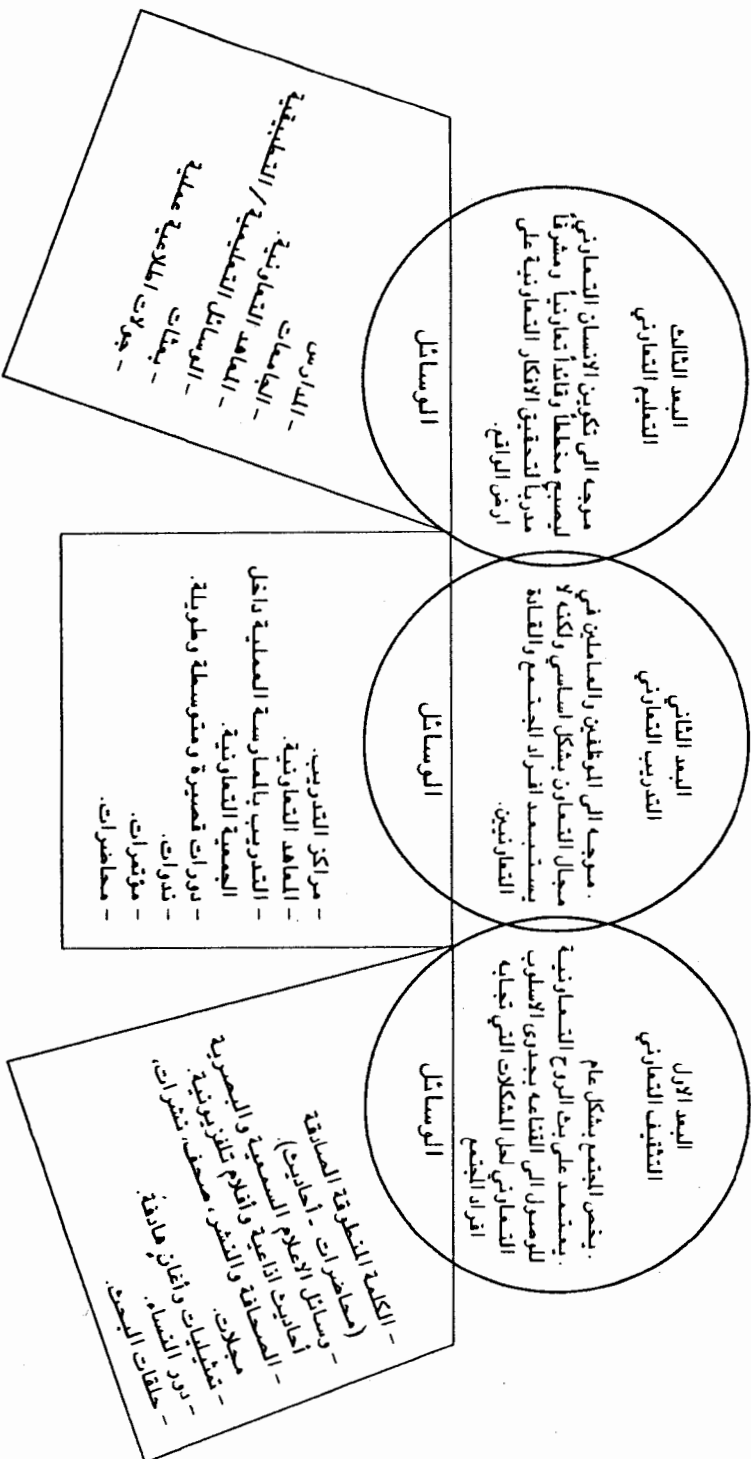 البعد الاول
التثقيف التعاوني
. يخص المجتمع بشكل عام
. يعتمد على بث الروح التعاونية
للوصول الى القناعه بجدوى الاسلوب
التعاوني لحل المشكلات التي تجابه
افراد المجتمع
الوسائل
- الكلمة المنطوقة الصادقة
(محاضرات - أحاديث).
- وسائل الاعلام السمعية والبصرية
أحاديث اذاعية وأفلام تلفزيونية.
- الصحافة والنشر، صحف، نشرات،
مجلات.
- تمثيليات وأغان هادفة.
- دور النساء.
- حلقات البحث.
البعد الثاني
التدريب التعاوني
. موجه الى الموظفين والعاملين في
مجال التعاون بشكل اساسي ولكنه لا
يستبعد افراد المجتمع والقادة
التعاونيين.
الوسائل
- مراكز التدريب.
- المعاهد التعاونية.
- التدريب بالممارسة العملية داخل
الجمعية التعاونية.
- دورات قصيرة ومتوسطة وطويلة.
- ندوات.
- مؤتمرات.
- محاضرات.
البعد الثالث
التعليم التعاوني
موجه الى تكوين الانسان التعاوني
ليصبح مخططاً وقائداً تعاونياً ومشرفاً
مدرباً لتحقيق الافكار التعاونية على
ارض الواقع.
الوسائل
- المدارس
- الجامعات
- المعاهد التعاونية.
- الوسائل التعليمية / التطبيقية
- بعثات
- جولات اطلاعية عملية